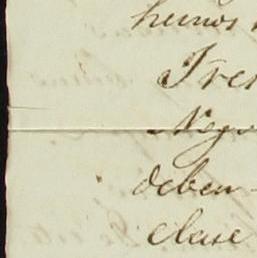 hemos
Tres
Nego
deben
clase